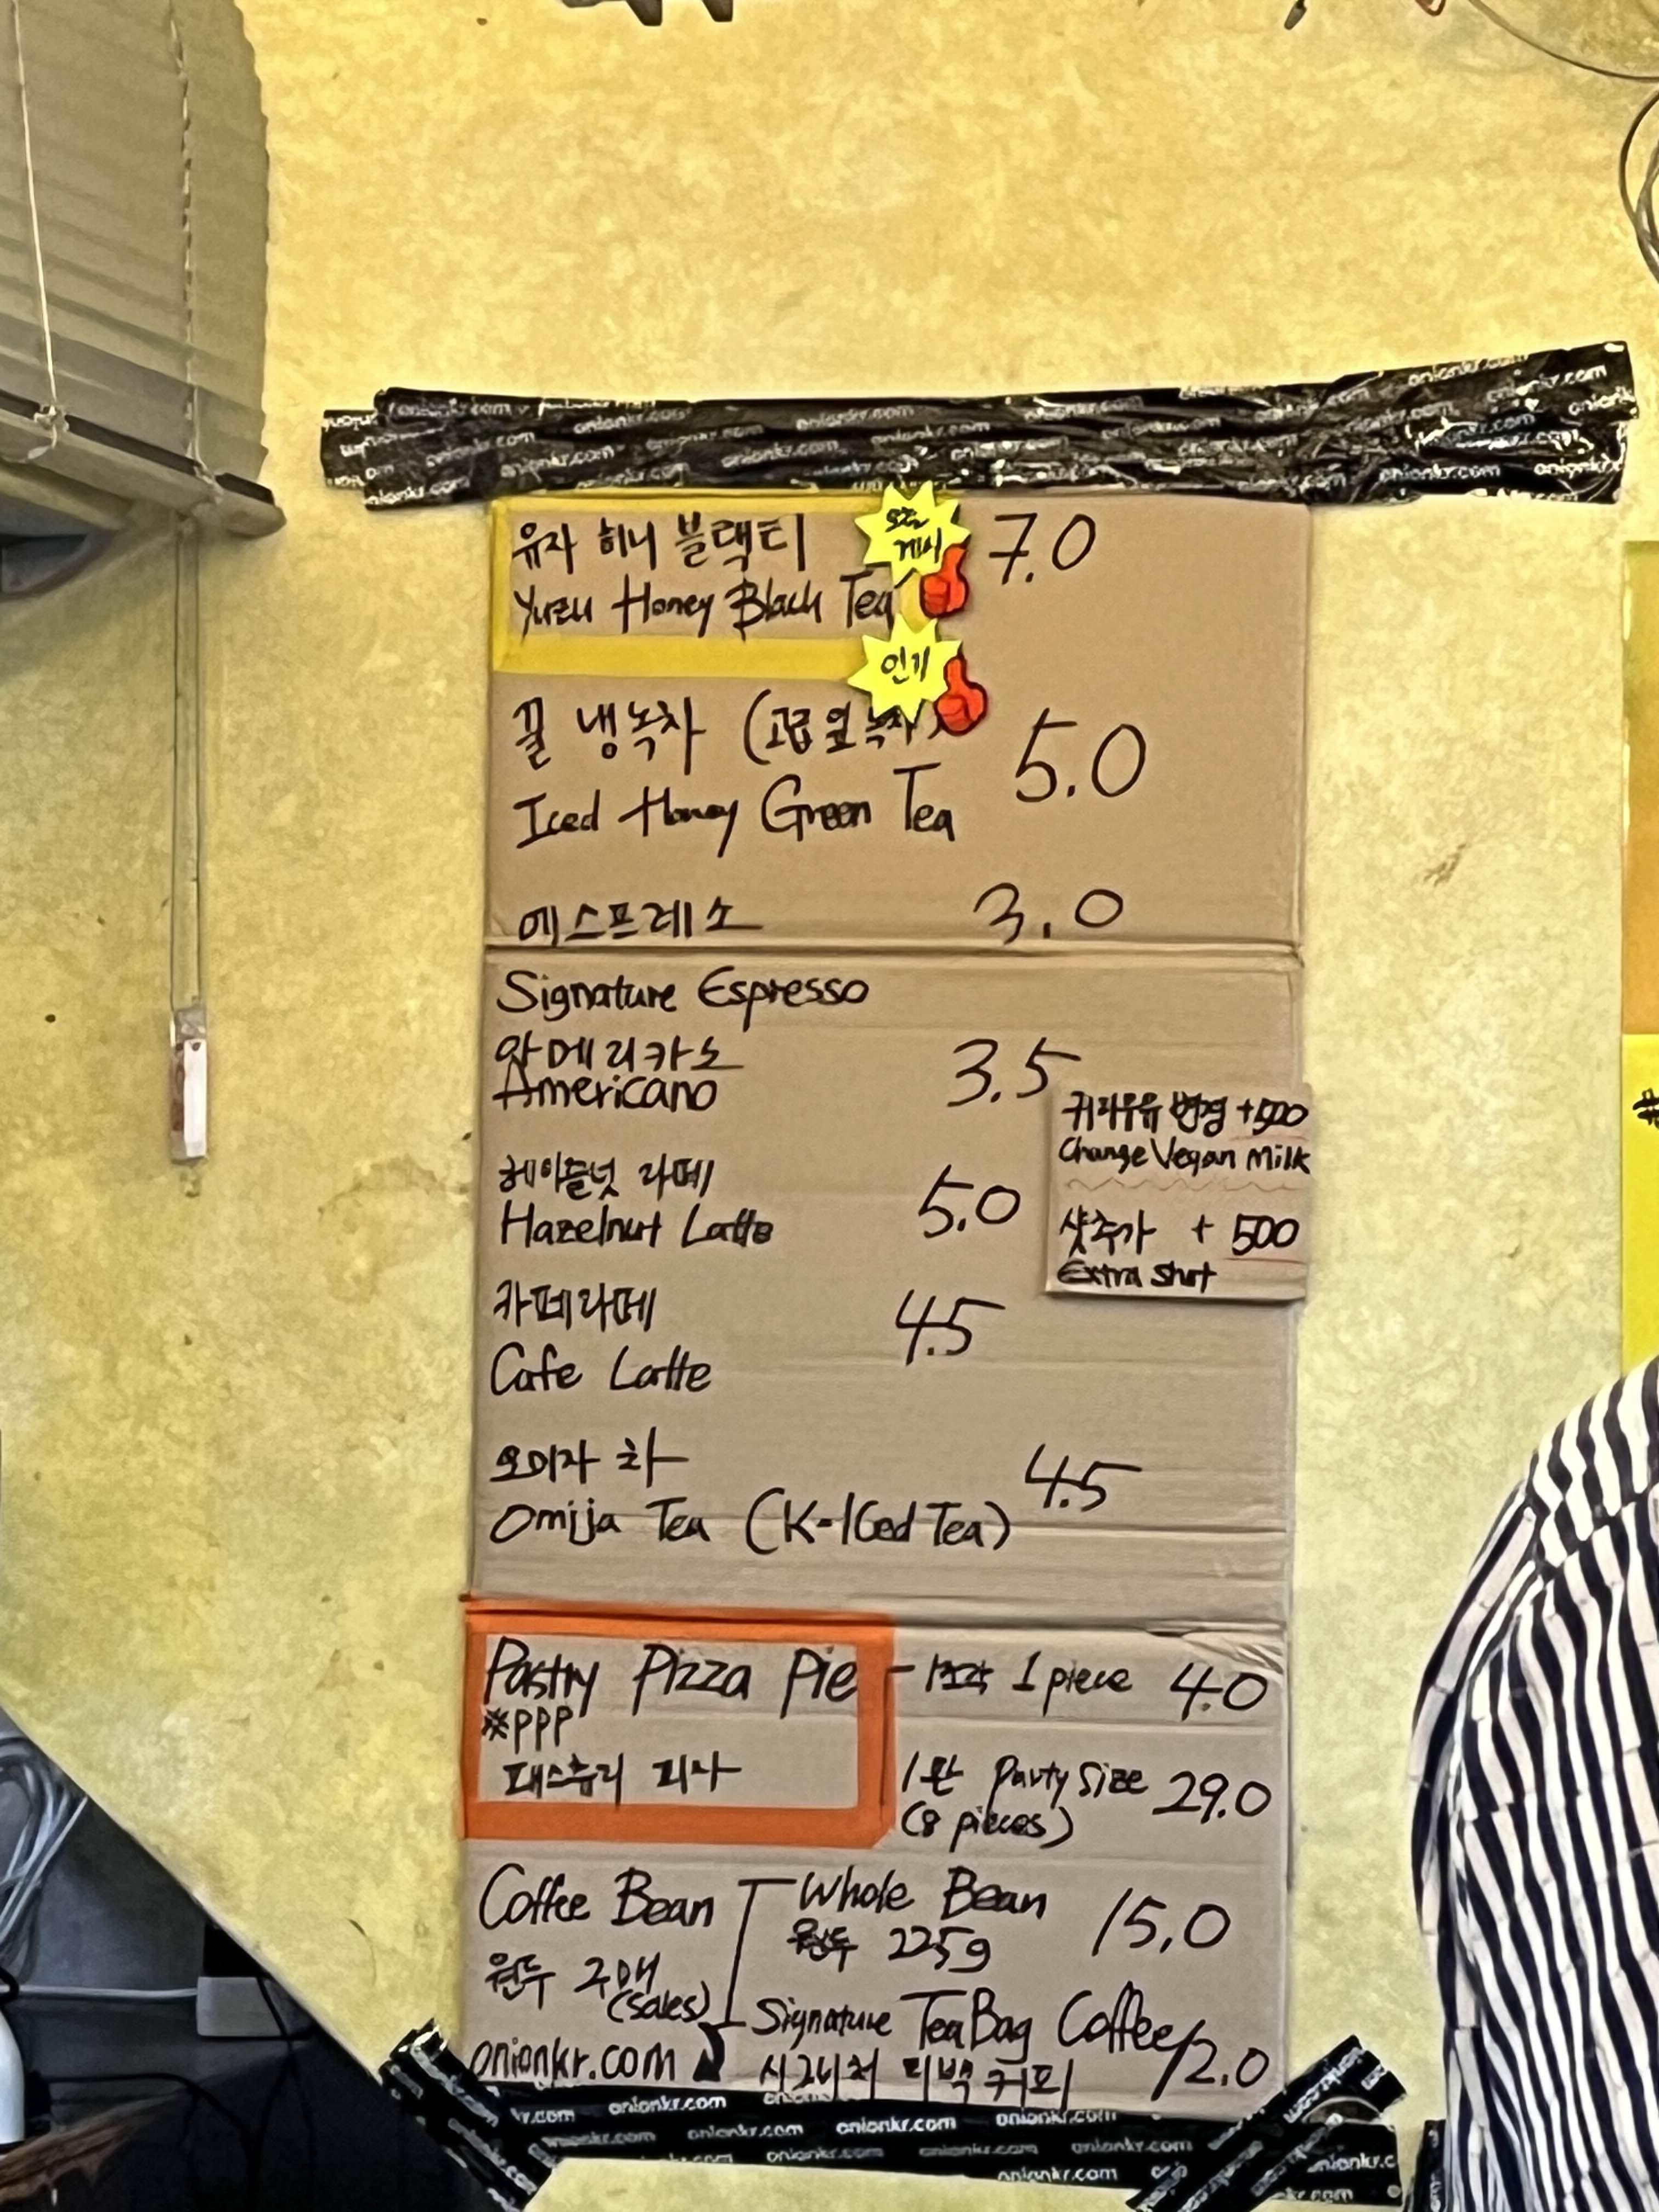 유자 허니 블랙티 7.0
Yuzu Honey Black Tea
인기
꿀 냉녹차 (고급 잎 녹차) 5.0
Iced Honey Green Tea
에스프레소 3.0
Signature Espresso
아메리카노 3.5
Americano
귀리우유 변경 +500
Change Vegan Milk
헤이즐넛 라떼 5.0
Hazelnut Latte
샷추가 + 500
Extra Shot
카페라떼 4.5
Cafe Latte
오미자 차 4.5
Omija Tea (K-ICed Tea)
Pastry Pizza Pie - 1조각 1 piece 4.0
#PPP
패스츄리 피자
1판 Party Size 29.0
(8 pieces)
Coffee Bean Whole Bean 15.0
원두 225g
원두 구매
(Sales)
Signature TeaBag Coffee 12.0
시그니처 티백 커피
onionkr.com
onionkr.com onionkr.com onionkr.com